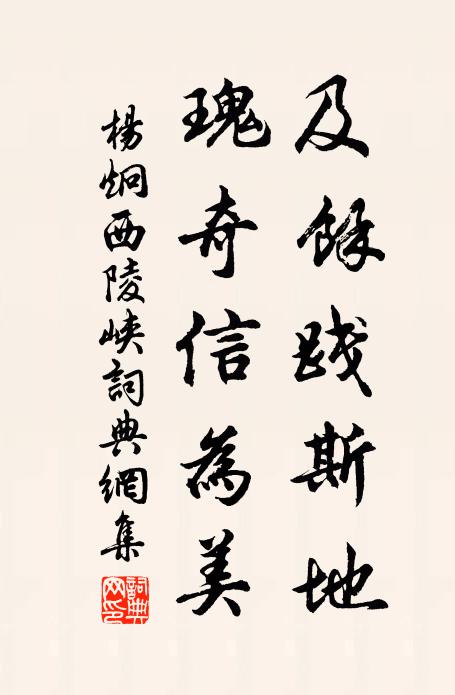 及餘踐斯地
瑰奇信為美
楊炯西陵峽詞典網集
詞典网印